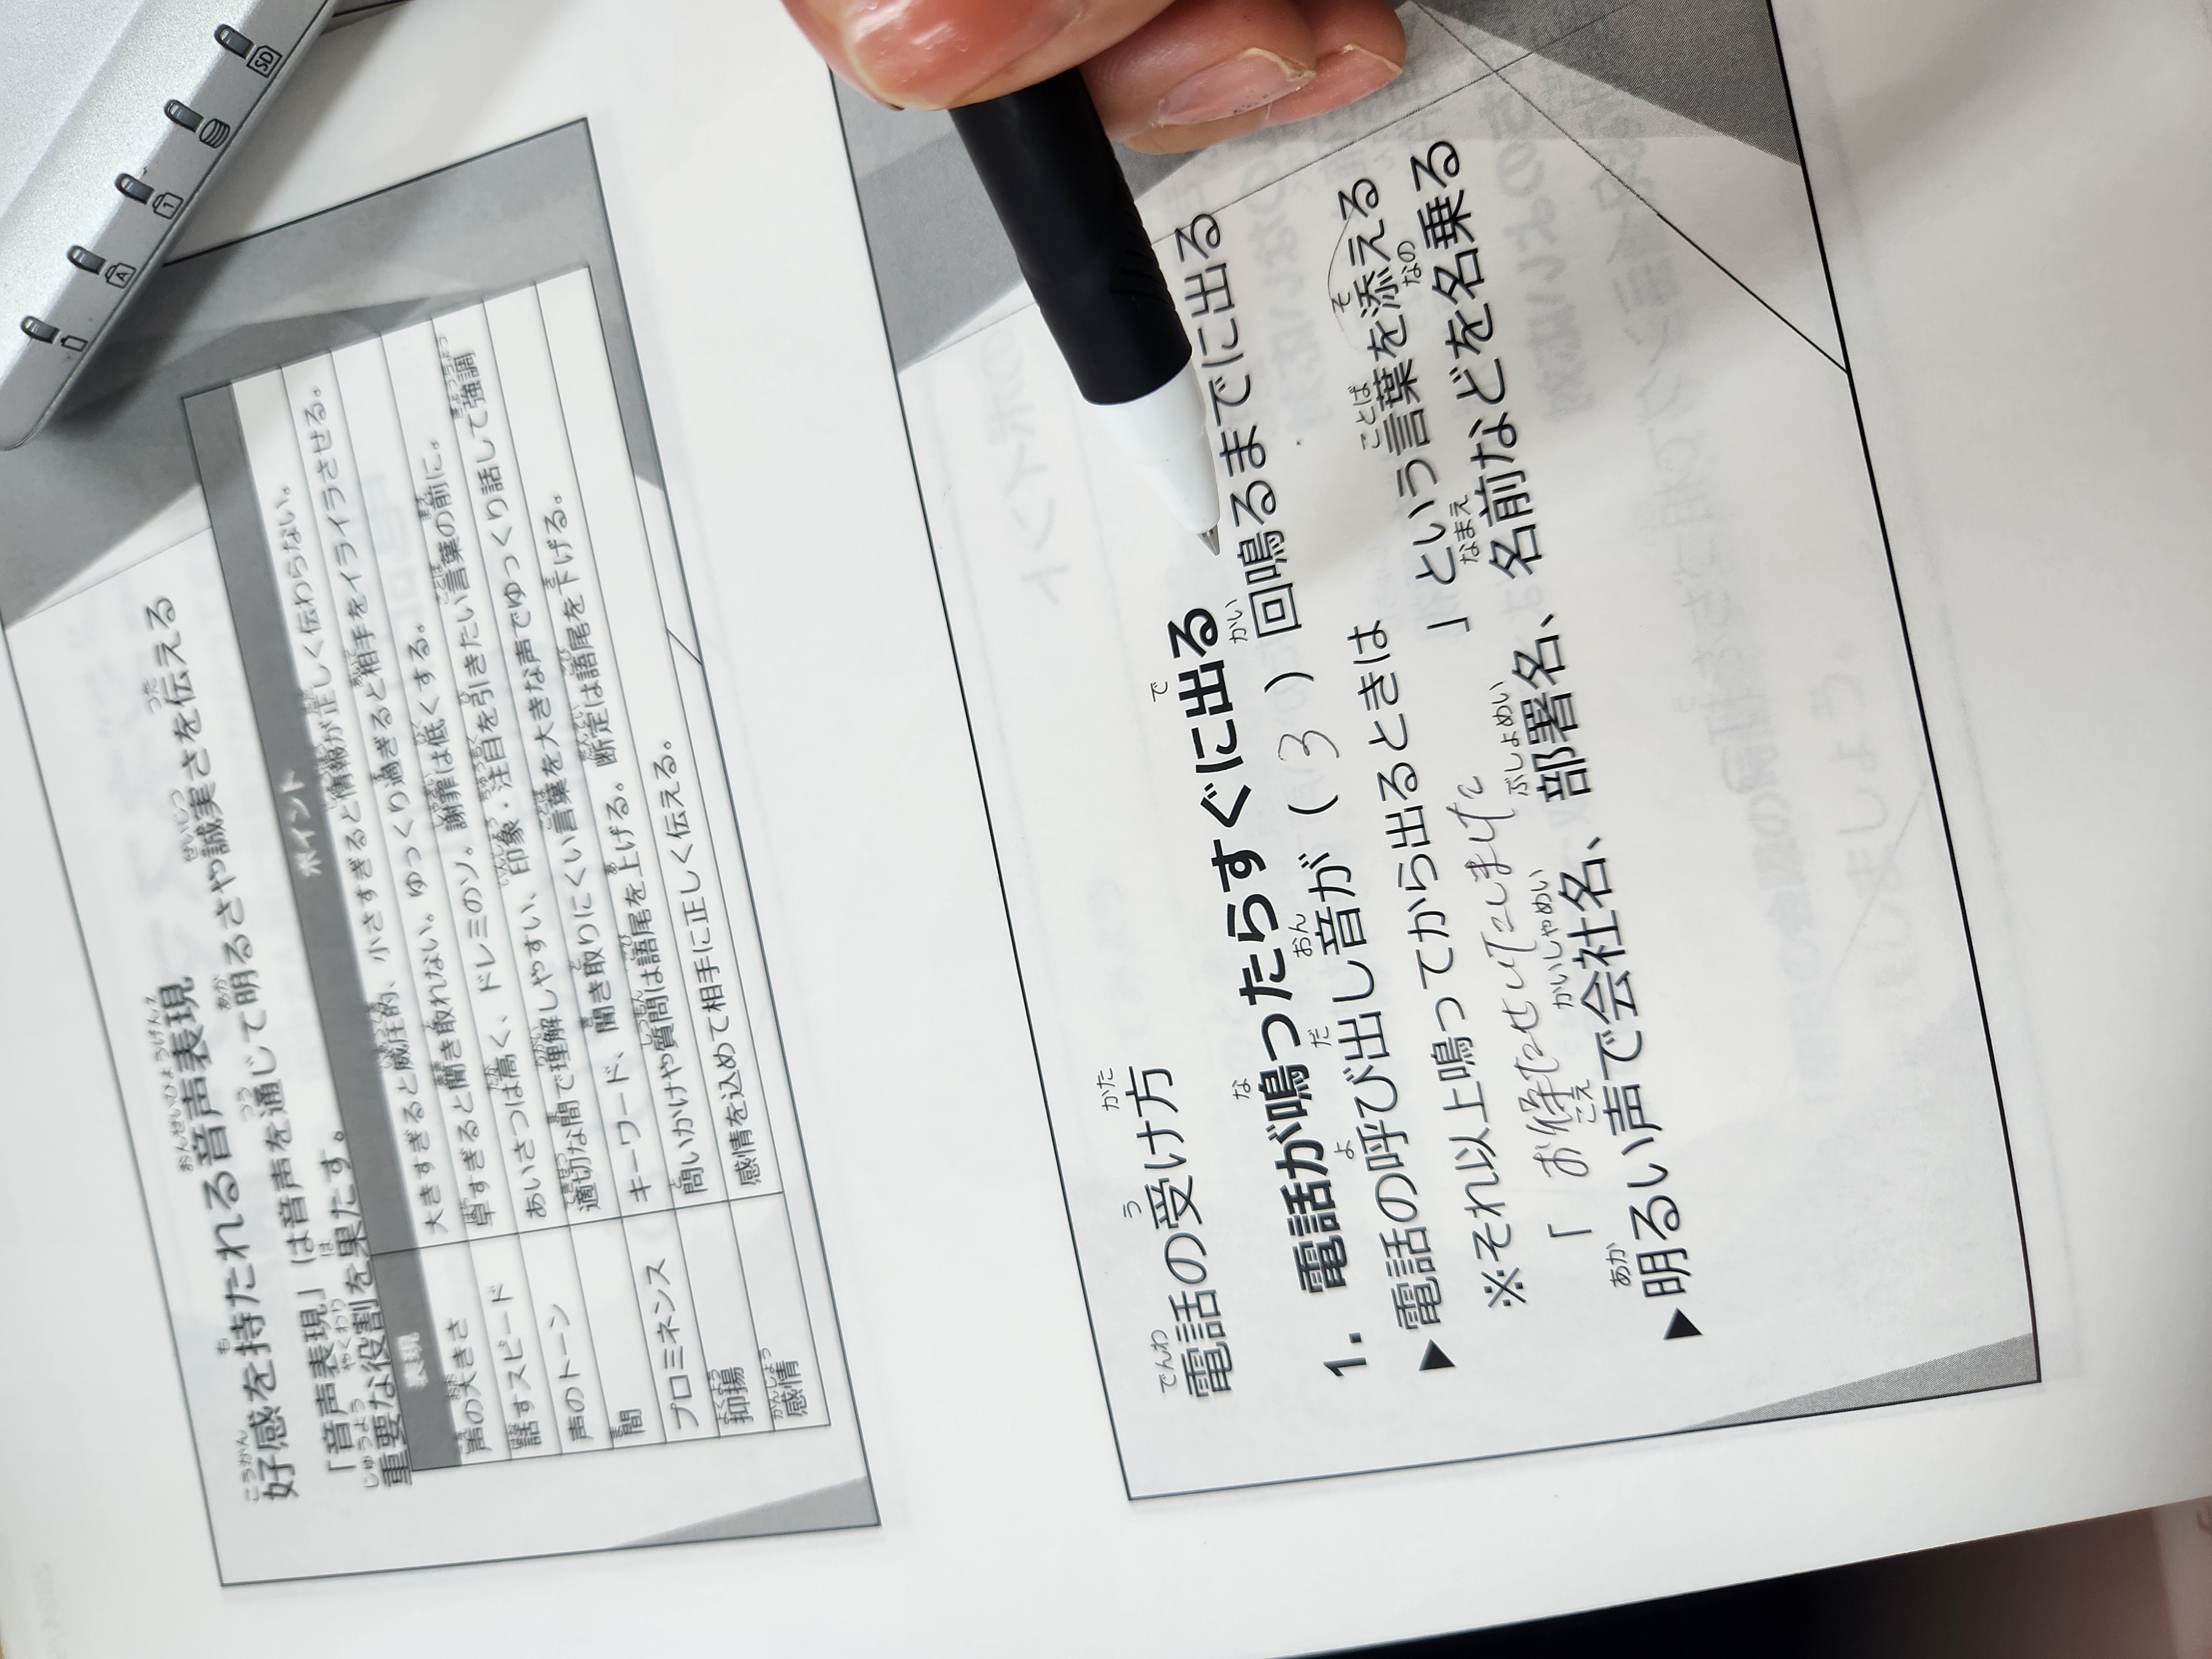 好感を持たれる音声表現
「音声表現」は音声を通じて明るさや誠実さを伝える
重要な役割を果たす。
表現 ポイント
声の大きさ 大きすぎると威圧的、小さすぎると情報が正しく伝わらない。
話すスピード 早すぎると聞き取れない。ゆっくり過ぎると相手をイライラさせる。
声のトーン あいさつは高く、ドレミのソ。謝罪は低くする。
間 適切な間で理解しやすい、印象・注目を引きたい言葉の前に。
プロミネンス キーワード、聞き取りにくい言葉を大きな声でゆっくり話して強調
抑揚 問いかけや質問は語尾を上げる。断定は語尾を下げる。
感情 感情を込めて相手に正しく伝える。
電話の受け方
1. 電話が鳴ったらすぐに出る
▶電話の呼び出し音が(3)回鳴るまでに出る
※それ以上鳴ってから出るときは
「お待たせいたしました」という言葉を添える
▶明るい声で会社名、部署名、名前などを名乗る
SD
1
A